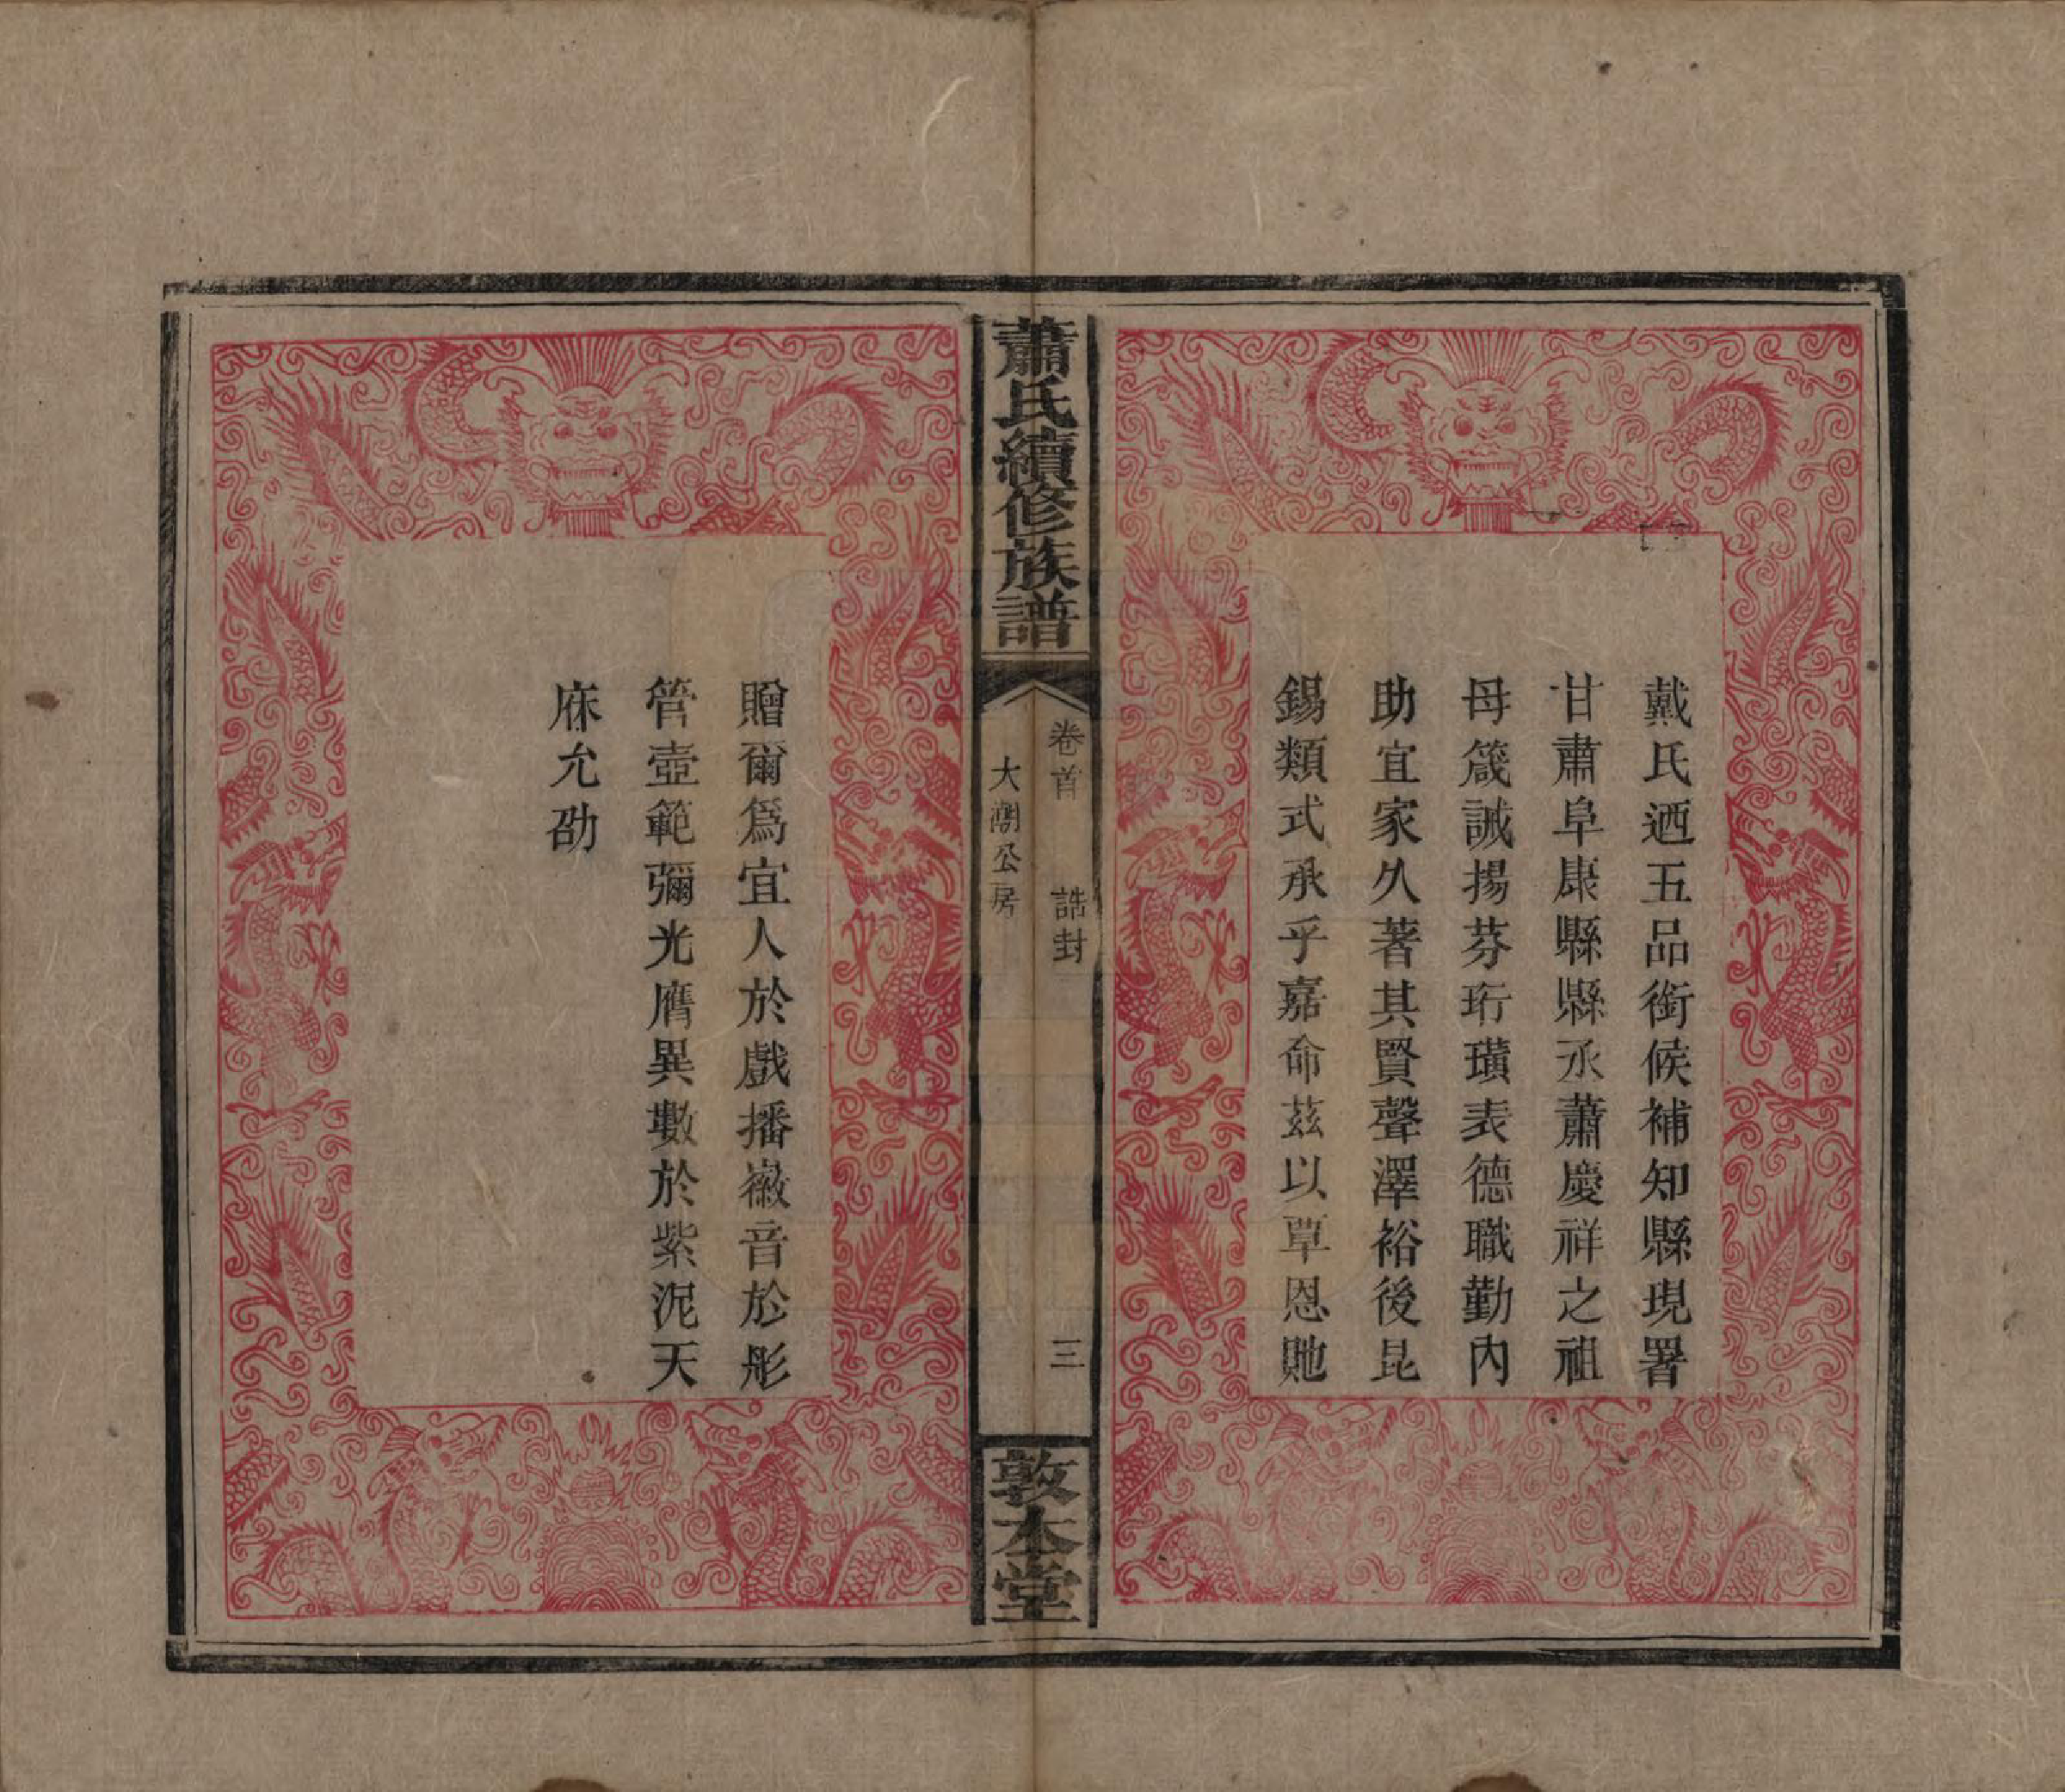 戴氏迺五品銜候補知縣現署
甘肅阜康縣縣丞蕭慶祥之祖
母箴誡揚芬珩璜表德職勤內
助宜家久著其賢聲澤裕後昆
錫類式承乎嘉命茲以覃恩貤
蕭氏續修族譜
卷首 誥封
三
大湖公房
敦本堂
贈爾爲宜人於戲播徽音於彤
管壼範彌光膺異數於紫泥天
庥允劭